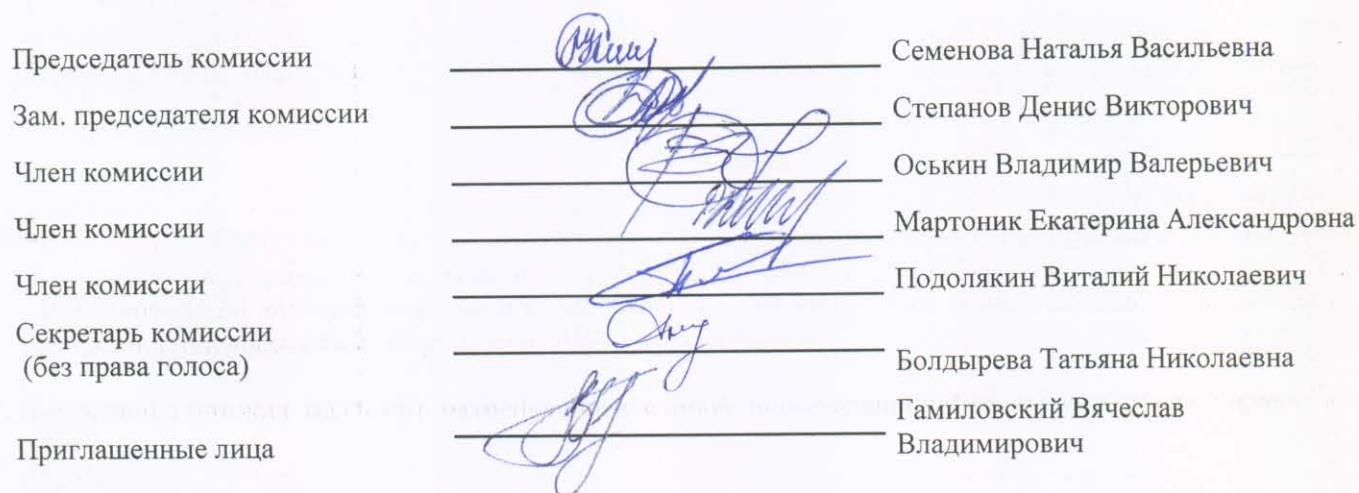 Председатель комиссии Семенова Наталья Васильевна
Зам. председателя комиссии Степанов Денис Викторович
Член комиссии Оськин Владимир Валерьевич
Член комиссии Мартоник Екатерина Александровна
Член комиссии Подолякин Виталий Николаевич
Секретарь комиссии
(без права голоса) Болдырева Татьяна Николаевна
Гамиловский Вячеслав
Приглашенные лица Владимирович